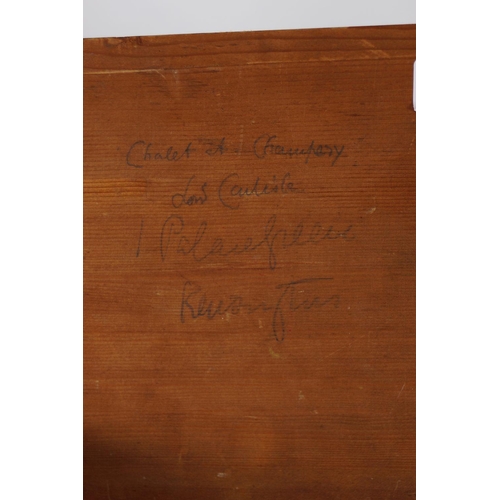 Chalet at Champery
Lord Carlisle
1 Palace Green
Kensington